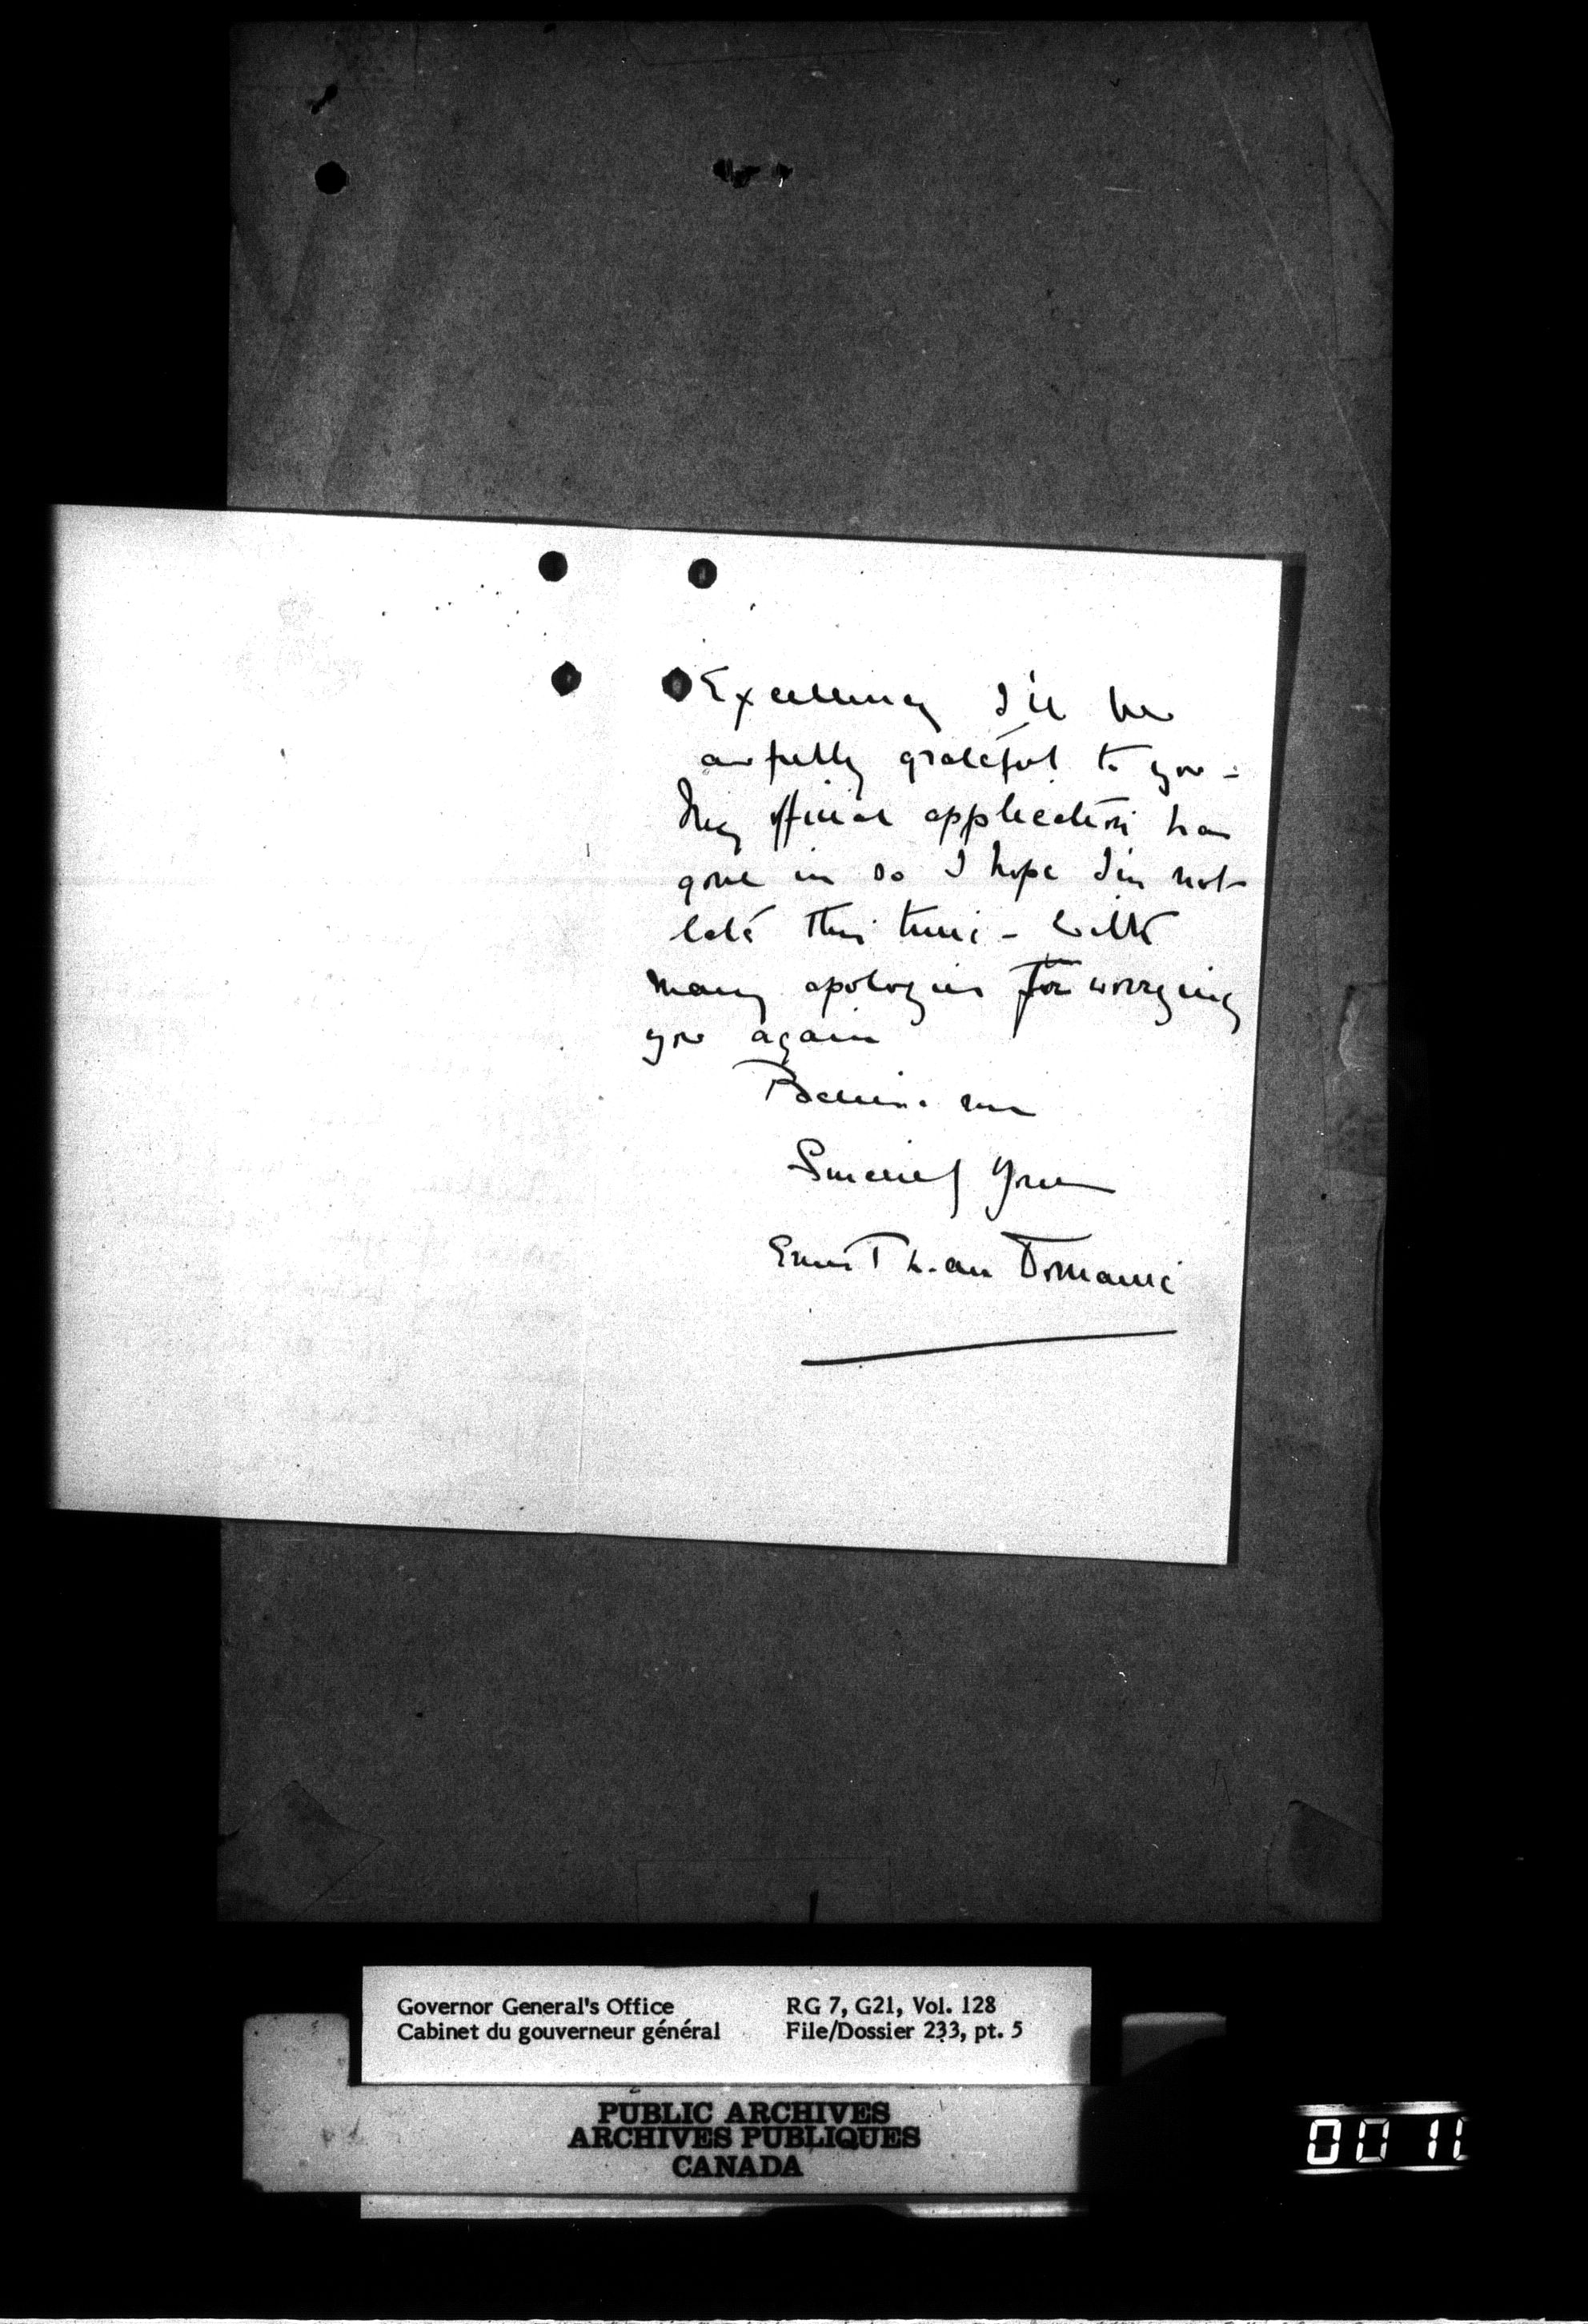 Excellency I'll be
awfully grateful to you -
My official application has
gone in so I hope I'm not
late this time - With
many apologies for worrying
you again
Believe me
Sincerely Yours
Ernest
Governor General's Office
Cabinet du gouverneur général
RG 7, G21, Vol. 128
File/Dossier 233, pt. 5
PUBLIC ARCHIVES
ARCHIVES PUBLIQUES
CANADA